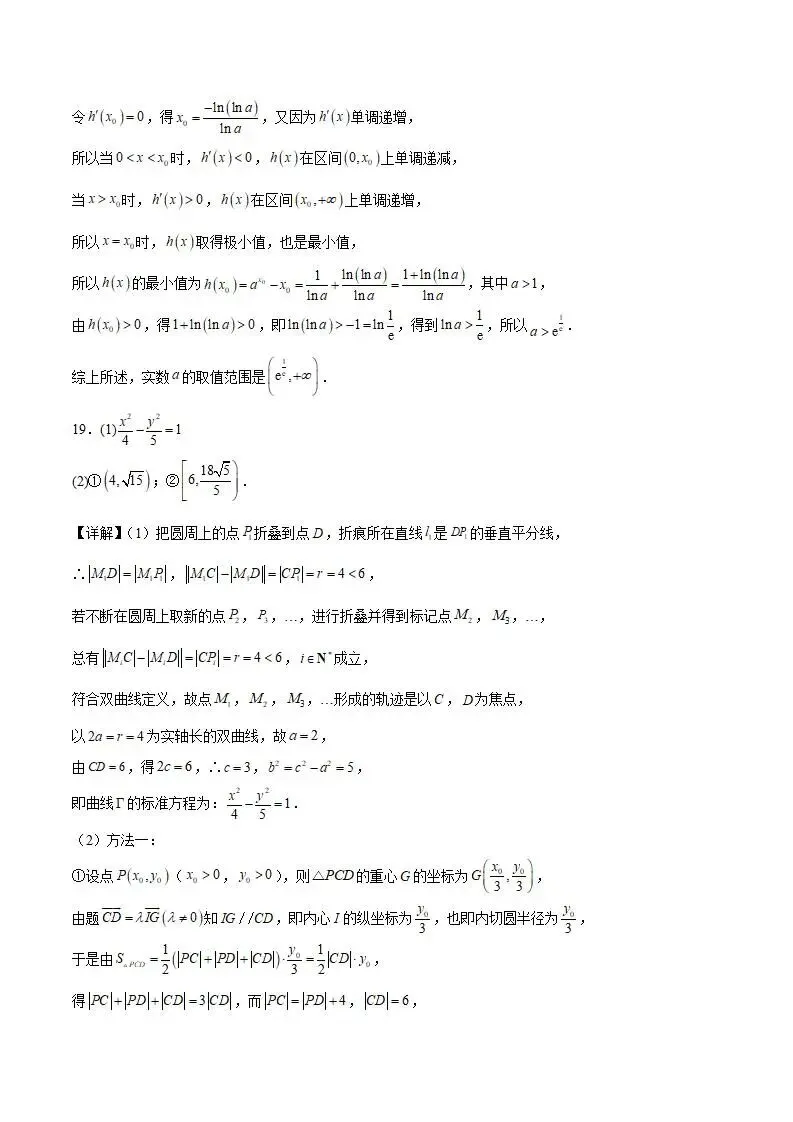 令h′(x₀)=0，得x₀=−ln(ln a)/ln a，又因为h′(x)单调递增，
所以当0<x<x₀时，h′(x)<0，h(x)在区间(0,x₀)上单调递减，
当x>x₀时，h′(x)>0，h(x)在区间(x₀,+∞)上单调递增，
所以x=x₀时，h(x)取得极小值，也是最小值，
所以h(x)的最小值为h(x₀)=a^(x₀)−x₀=1/ln a+ln(ln a)/ln a=(1+ln(ln a))/ln a，其中a>1，
由h(x₀)>0，得1+ln(ln a)>0，即ln(ln a)>−1=ln(1/e)，得到ln a>1/e，所以a>e^(1/e).
综上所述，实数a的取值范围是(e^(1/e),+∞).
19．(1)x²/4−y²/5=1
(2)①(4,√15)；②[6,18√5/5).
【详解】（1）把圆周上的点P₁折叠到点D，折痕所在直线l₁是DP₁的垂直平分线，
∴|M₁D|=|M₁P₁|，||M₁C|−|M₁D||=|CP₁|=r=4<6，
若不断在圆周上取新的点P₂，P₃，…，进行折叠并得到标记点M₂，M₃，…，
总有||MᵢC|−|MᵢD||=|CPᵢ|=r=4<6，i∈N*成立，
符合双曲线定义，故点M₁，M₂，M₃，…形成的轨迹是以C，D为焦点，
以2a=r=4为实轴长的双曲线，故a=2，
由CD=6，得2c=6，∴c=3，b²=c²−a²=5，
即曲线Γ的标准方程为：x²/4−y²/5=1.
（2）方法一：
①设点P(x₀,y₀)（x₀>0，y₀>0），则△PCD的重心G的坐标为G(x₀/3,y₀/3)，
由题CD→=λIG→(λ≠0)知IG//CD，即内心I的纵坐标为y₀/3，也即内切圆半径为y₀/3，
于是由S△PCD=1/2(|PC|+|PD|+|CD|)·y₀/3=1/2|CD|·y₀，
得|PC|+|PD|+|CD|=3|CD|，而|PC|=|PD|+4，|CD|=6，